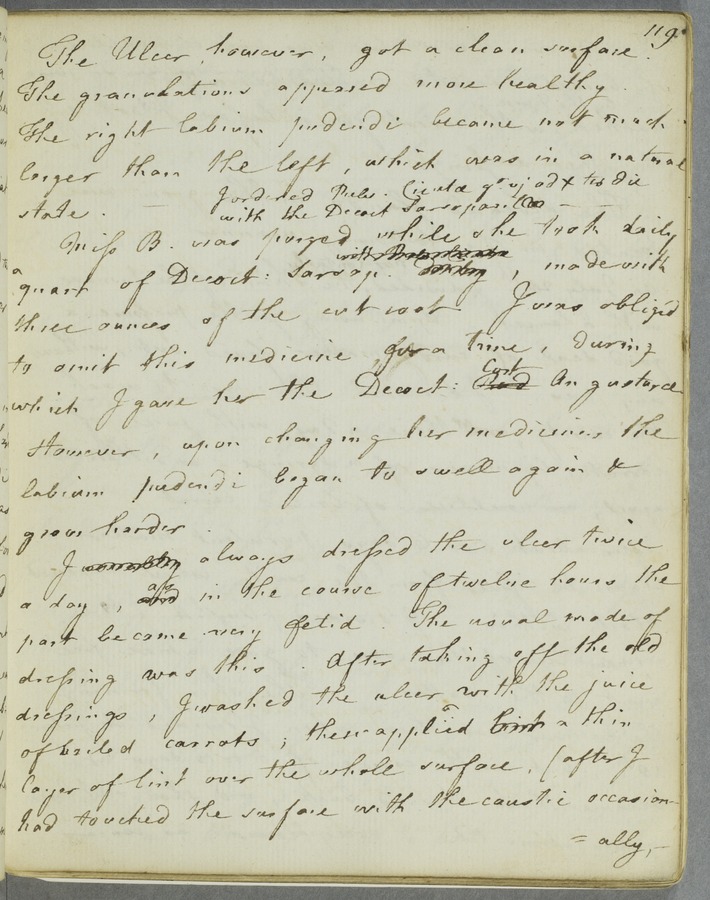 119.
The Ulcer, however, got a clean surface.
The granulations appeared more healthy.
The right labium pudendi became not much
larger than the left, which was in a natural
state. — I ordered Pulv. Cicutæ gr vj ad x ter die
with the Decoct Sarsaparill
Miss B. was purged while she took daily
a quart of Decoct: Sarsap. , made with
three ounces of the cut root. I was obliged
to omit this medicine for a time, during
which I gave her the Decoct: Cort Angusturæ
However, upon changing her medicines, the
labium pudendi began to swell again &
grow harder.
I always dressed the ulcer twice
a day, as in the course of twelve hours the
part became very fetid. The usual mode of
dressing was this. After taking off the old
dressings, I washed the ulcer with the juice
of boiled carrots; then applied lint a thin
layer of lint over the whole surface, (after I
had touched the surface with the caustic occasion-
=ally,—